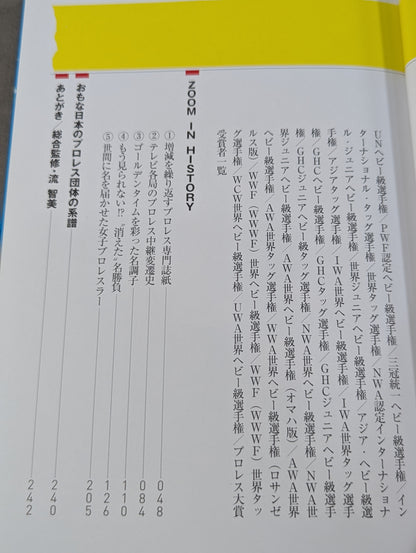 UNヘビー級選手権／PWF認定ヘビー級選手権／三冠統一ヘビー級選手権／イン
ターナショナル・タッグ選手権／世界タッグ選手権／NWA認定インターナショナ
ル・ジュニアヘビー級選手権／世界ジュニアヘビー級選手権／アジア・ヘビー級選
手権／アジアタッグ選手権／IWA世界ヘビー級選手権／IWA世界タッグ選手
権／GHCヘビー級選手権／GHCタッグ選手権／GHCジュニアヘビー級選手権
／GHCジュニアヘビー級タッグ選手権／NWA世界ヘビー級選手権／NWA世
界ジュニアヘビー級選手権／AWA世界ヘビー級選手権（オマハ版）／AWA世界
ヘビー級選手権／AWA世界タッグ選手権／WWA世界ヘビー級選手権（ロサンゼ
ルス版）／WWF（WWWF）世界ヘビー級選手権／WWF（WWWF）世界タッ
グ選手権／WCW世界ヘビー級選手権／UWA世界ヘビー級選手権／プロレス大賞
受賞者一覧
ZOOM IN HISTORY
①増減を繰り返すプロレス専門誌紙 048
②テレビ各局のプロレス中継変遷史 084
③ゴールデンタイムを彩った名調子 110
④もう見られない!? “消えた”名勝負 126
⑤世間に名を届かせた女子プロレスラー 205
おもな日本のプロレス団体の系譜 240
あとがき／総合監修・流 智美 242